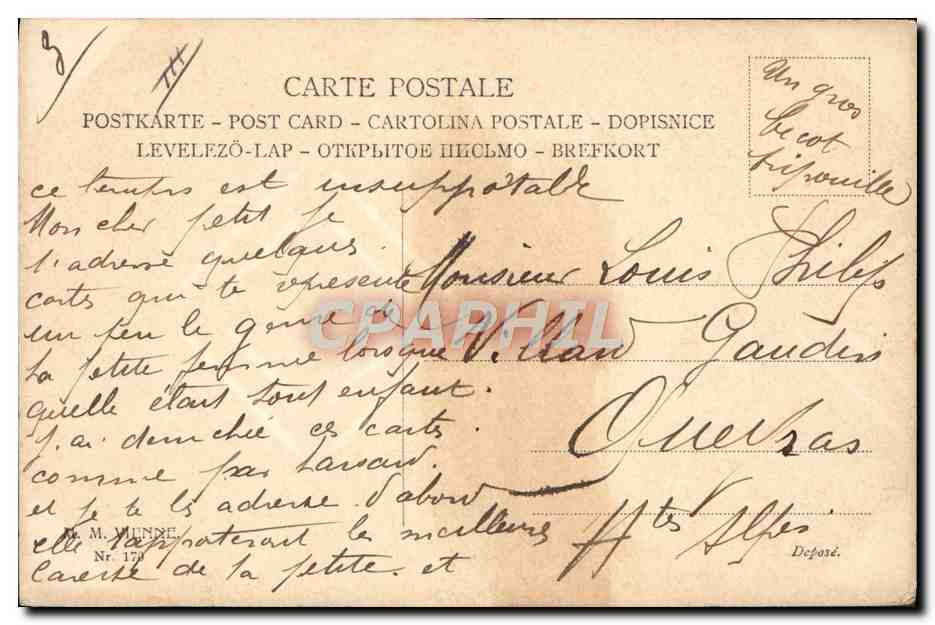 3
III
CARTE POSTALE
POSTKARTE – POST CARD – CARTOLINA POSTALE – DOPISNICE
LEVELEZÖ-LAP – ОТКРЫТОЕ ПИСЬМО – BREFKORT
Un gros
becot
ce temps est insupportable
Mon cher petit je
t'adresse quelques
cartes qui te represente
un peu le genre de
ta petite femme lorsque
quelle était tout enfant.
J'ai denichée ces cartes
comme par hasard.
et je te les adresse d'abord
elle t'apporteront les meilleures
Caresse de ta petite et
Monsieur Louis Philip
Villard Gaudin
Queyras
Htes Alpes
CPAPHIL
M. M. VIENNE.
Nr. 170
Deposé.